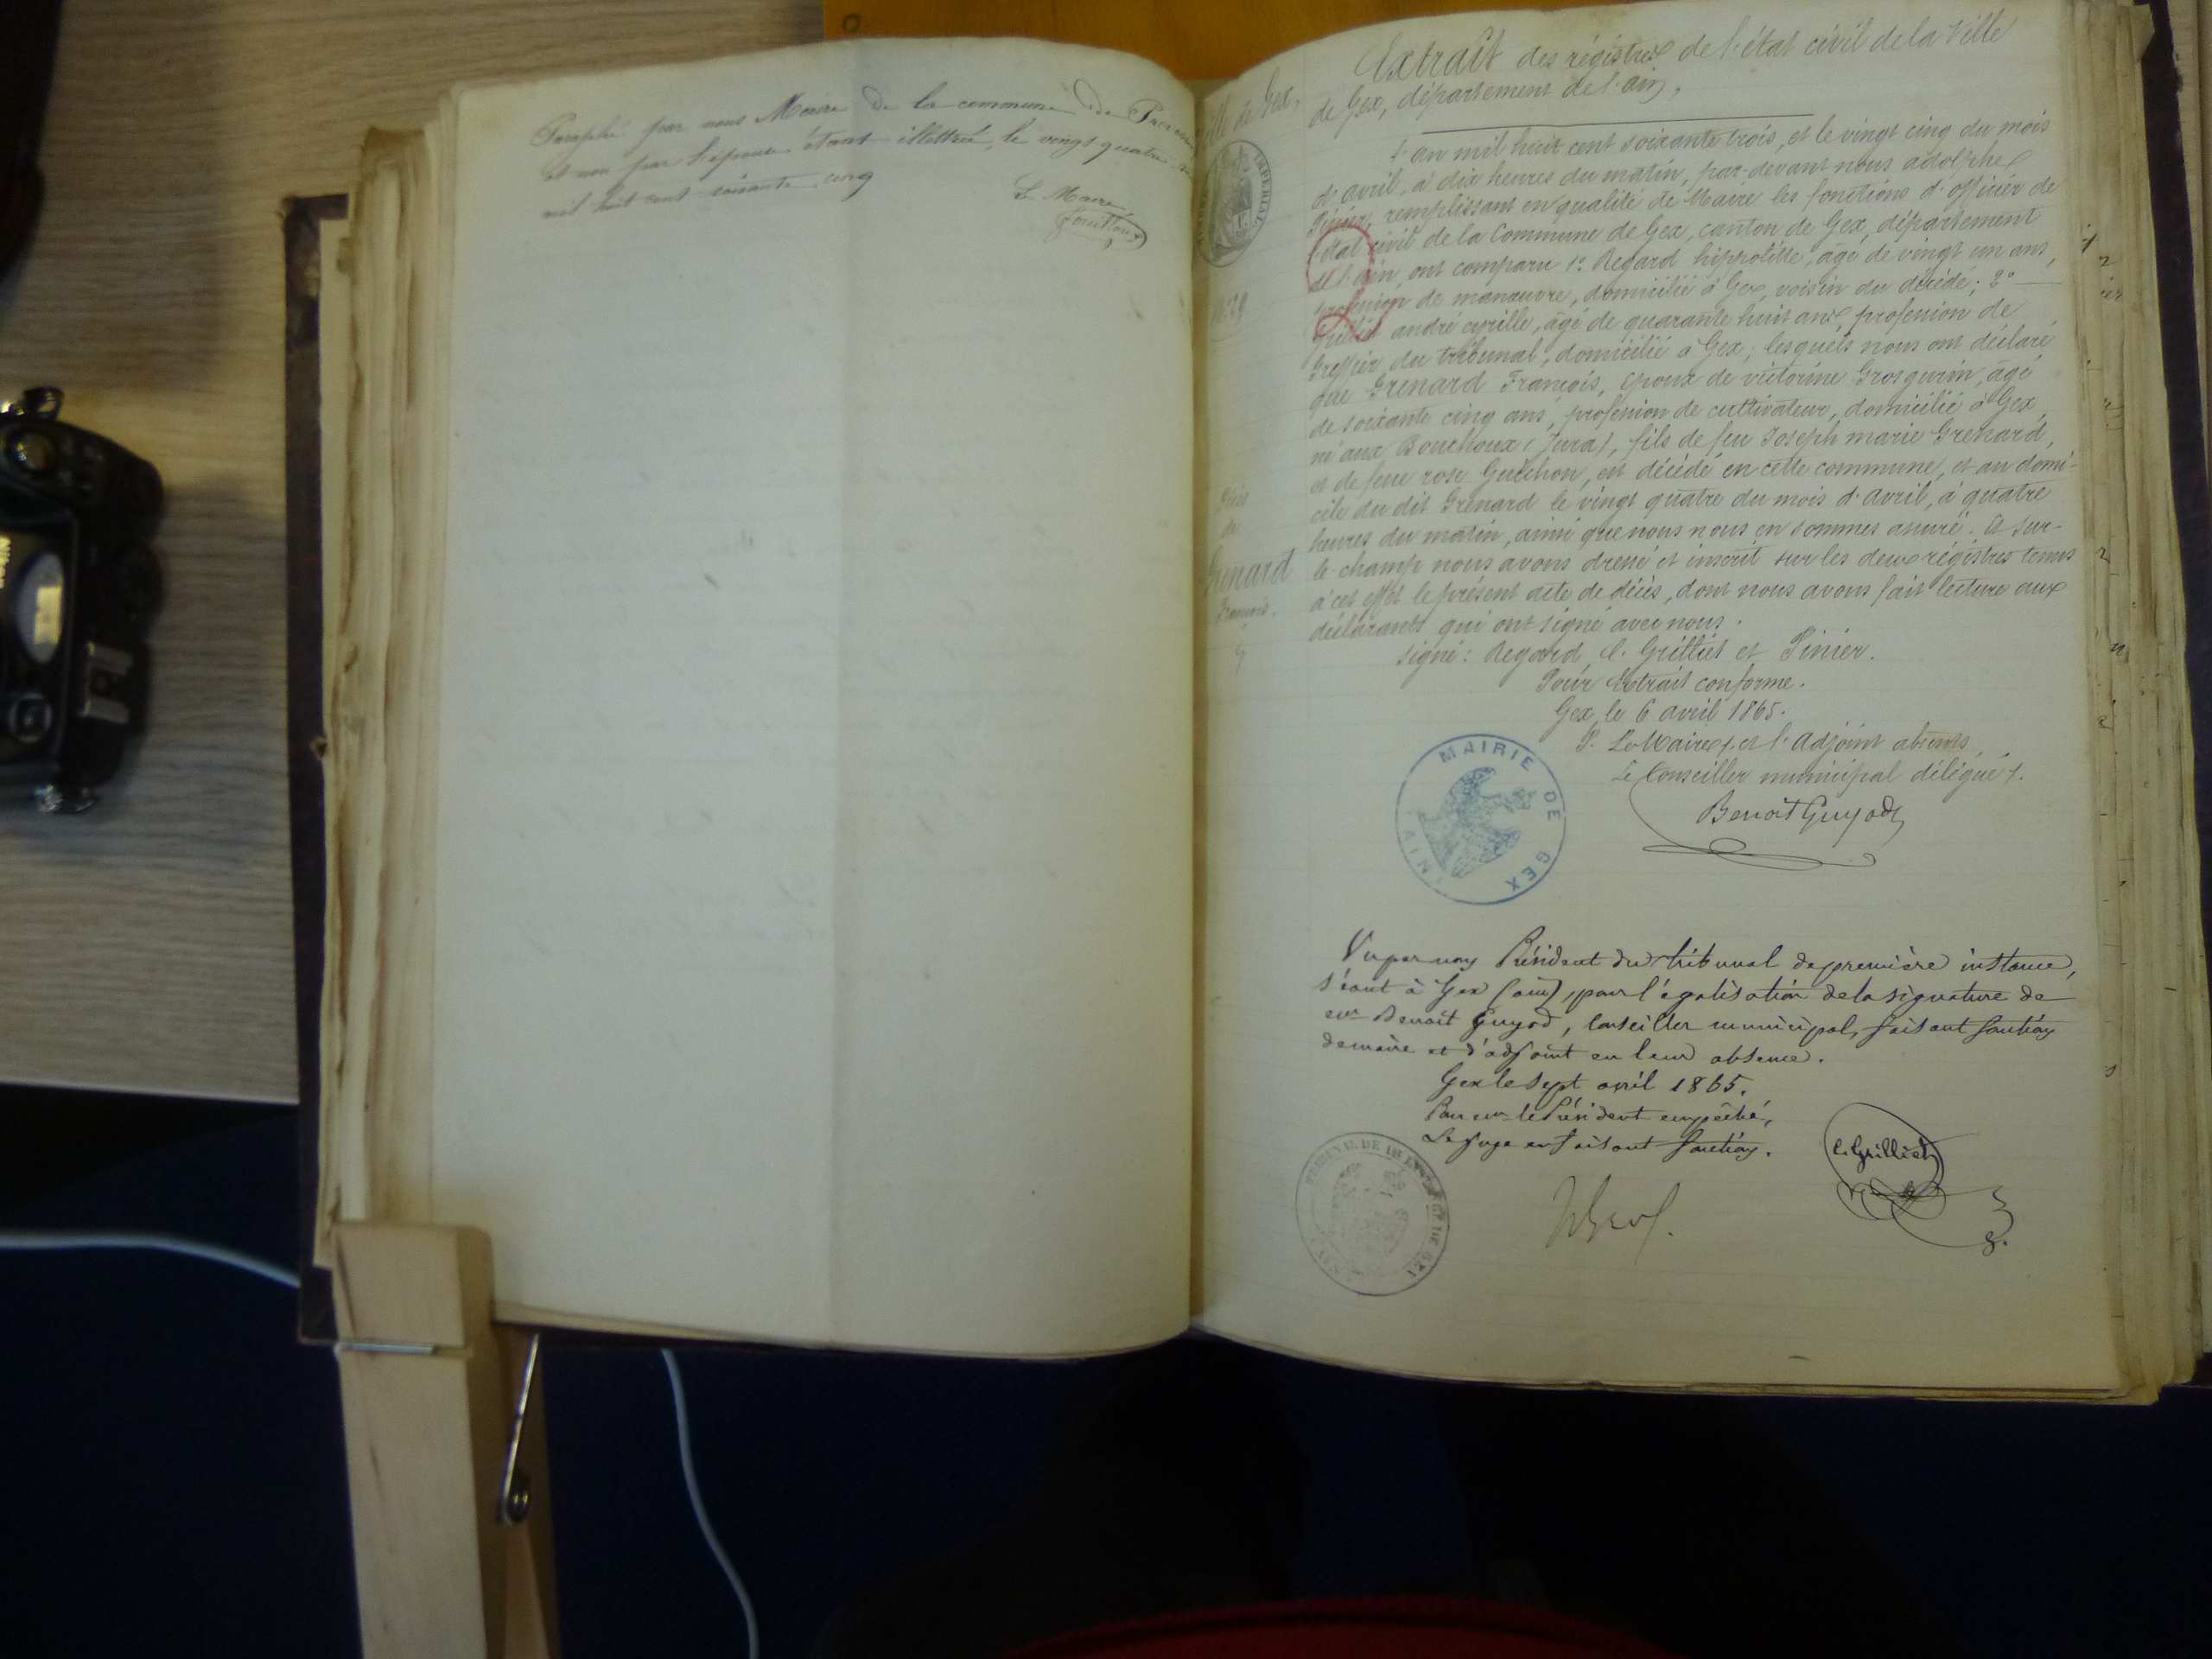 Paraphé par nous Maire de la commune de
et non par l'épouse étant illettrée, le vingt quatre
mil huit cent soixante cinq
Le Maire
Ville de Gex,
Extrait des régistres de l'état civil de la Ville
de Gex, département de l'ain,
L'an mil huit cent soixante trois, et le vingt cinq du mois
d'avril, à dix heures du matin, par-devant nous adolphe
Pinier, remplissant en qualité de Maire les fonctions d'officier de
l'état civil de la Commune de Gex, canton de Gex, département
de l'ain, ont comparu 1º Regard hippolitte, âgé de vingt un ans,
profession de manœuvre, domicilié à Gex, voisin du décédé; 2º
Grilliet andré cyrille, âgé de quarante huit ans, profession de
Greffier du tribunal, domicilié à Gex; lesquels nous ont déclaré
que Grenard François, époux de victorine Grosgurin, âgé
de soixante cinq ans, profession de cultivateur, domicilié à Gex,
né aux Bouchoux (Jura), fils de feu Joseph marie Grenard,
et de feue rose Guichon, est décédé en cette commune, et au domi-
cile du dit Grenard le vingt quatre du mois d'avril, à quatre
heures du matin, ainsi que nous nous en sommes assuré. et sur-
le-champ nous avons dressé et inscrit sur les deux régistres tenus
à cet effet le présent acte de décès, dont nous avons fait lecture aux
déclarants qui ont signé avec nous.
Décès
de
Grenard
François.
signé: Regard, C. Grilliet et Pinier.
Pour Extrait conforme.
Gex, le 6 avril 1865.
P. Le Maire, et l'adjoint absents,
Le Conseiller municipal délégué,
Benoit Guyod
MAIRIE DE GEX
AIN
Vu par nous Président du tribunal de première instance,
séant à Gex (ain), pour légalisation de la signature de
mr Benoit Guyod, Conseiller municipal, faisant fonction
de maire et d'adjoint en leur absence.
Gex le sept avril 1865.
Pour mr le Président empêché,
Le juge en faisant fonction.
C. Grilliet